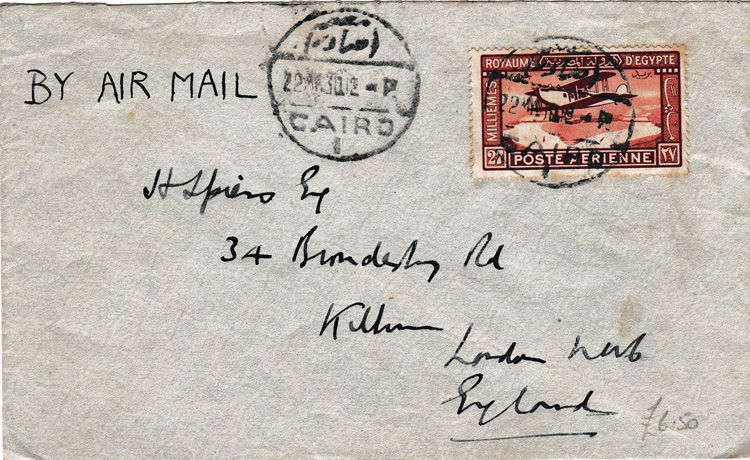 BY AIR MAIL
مصر
CAIRO
1
ROYAUME D'EGYPTE
MILLIEMES
27 POSTE AERIENNE ٢٧
H Spiers Esq
34 Brondesbury Rd
Kilburn
London NW6
England
£6.50